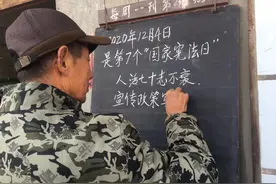 每周一刊
2020年12月4日
是第7个"国家宪法日"
人活七十志不衰
宣传政策